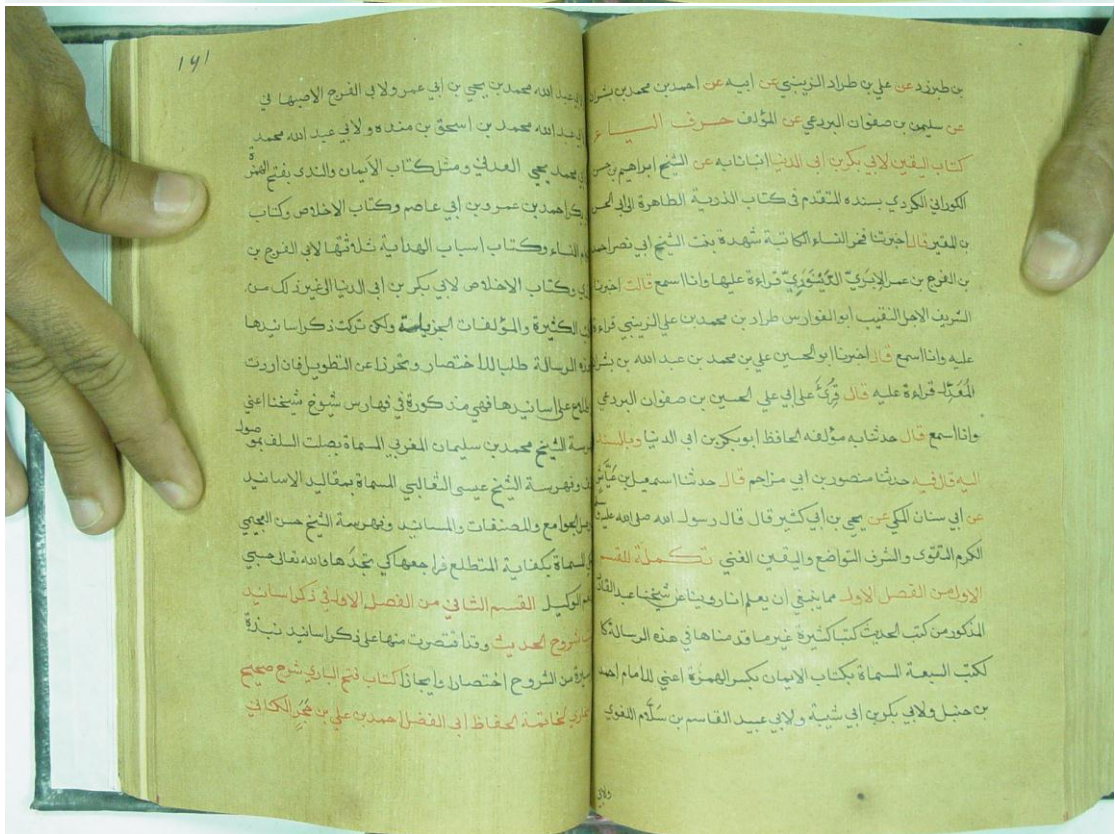 بن طبرزد عن علي بن طراد الزينبي عن ابيه عن احمد بن محمد بن بشران
عن سليمن بن صفوان البردعي عن المؤلف حرف اليا
كتاب اليقين لابي بكر بن ابي الدنيا انبانا به عن الشيخ ابراهيم بن حسن
الكوراني الكردي بسنده المتقدم في كتاب الذرية الطاهرة الى ابي الحسن
بن المقير قال اخبرتنا فخر النساء الكاتبة شهدة بنت الشيخ ابي نصر احمد
بن الفرج بن عمر الإبَريّ الدّينَوَريّ قراءة عليها وانا اسمع قالت اخبرنا
الشريف الاجل النقيب ابو الفوارس طراد بن محمد بن علي الزينبي قراءة
عليه وانا اسمع قال اخبرنا ابو الحسين علي بن محمد بن عبد الله بن بشران
المُعَدِّل قراءة عليه قال قُرِئَ على ابي علي الحسين بن صفوان البردعي
وانا اسمع قال حدثنا به مؤلفه الحافظ ابو بكر بن ابي الدنيا وبالسند
اليه قال فيه حدثنا منصور بن ابي مزاحم قال حدثنا اسمعيل بن عَيَّاش
عن ابي سنان المكي عن يحيى بن ابي كثير قال قال رسول الله صلى الله عليه
الكرم التقوى والشرف التواضع واليقين الغنى تكملة للقسم
الاول من الفصل الاول مما ينبغي ان يعلم انا روينا عن شيخنا عبد القادر
المذكور من كتب الحديث كتبا كثيرة غير ما قدمناها في هذه الرسالة كا
لكتب السبعة المسماة بكتاب الايمان بكسر الهمزة اعني للامام احمد
بن حنبل ولابي بكر بن ابي شيبة ولابي عبيد القاسم بن سَلَّام اللغوي
ولابي
١٤١
عبد الله محمد بن يحيى بن ابي عمر ولابي الفرج الاصبهاني
عبد الله محمد بن اسحق بن منده ولابي عبد الله محمد
محمد يحيى العدني ومثل كتاب الأيمان والندى بفتح الهمزة
بكر احمد بن عمرو بن ابي عاصم وكتاب الاخلاص وكتاب
النساء وكتاب اسباب الهداية ثلاثتها لابي الفرج بن
وكتاب الاخلاص لابي بكر بن ابي الدنيا الى غير ذلك من
الكثيرة والمؤلفات الجزيلة ولكن تركت ذكر اسانيدها
هذه الرسالة طلبا للاختصار وتحرزا عن التطويل فان اردت
على اسانيدها فهي مذكورة في فهارس شيوخ شيخنا اعني
الشيخ محمد بن سليمان المغربي المسماة بصلت السلف بموصول
وفهرسة الشيخ عيسى الثعالبي المسماة بمقاليد الاسانيد
الجوامع والمصنفات والمسانيد وفهرسة الشيخ حسن العجيمي
المسماة بكفاية المتطلع فراجعها كي تجدها والله تعالى حسبي
الوكيل القسم الثاني من الفصل الاول في ذكر اسانيد
شروح الحديث وقد اقتصرت منها على ذكر اسانيد نبذة
من الشروح اختصارا وايجازا كتاب فتح الباري شرح صحيح
لخاتمة الحفاظ ابي الفضل احمد بن علي بن حَجَر الكناني